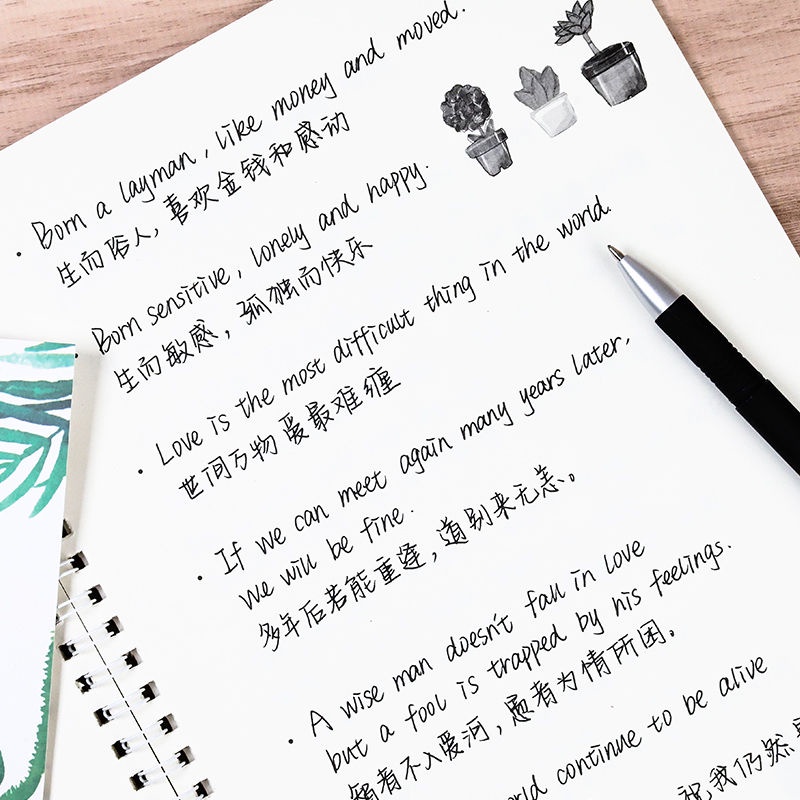 Born a layman, like money and moved.
生而俗人,喜欢金钱和感动
Born sensitive, lonely and happy.
生而敏感,孤独而快乐
Love is the most difficult thing in the world.
世间万物 爱最难缠
If we can meet again many years later,
we will be fine.
多年后若能重逢,道别来无恙。
A wise man doesn't fall in love
but a fool is trapped by his feelings.
智者不入爱河,愚者为情所困。
continue to be alive
祝,我们仍然